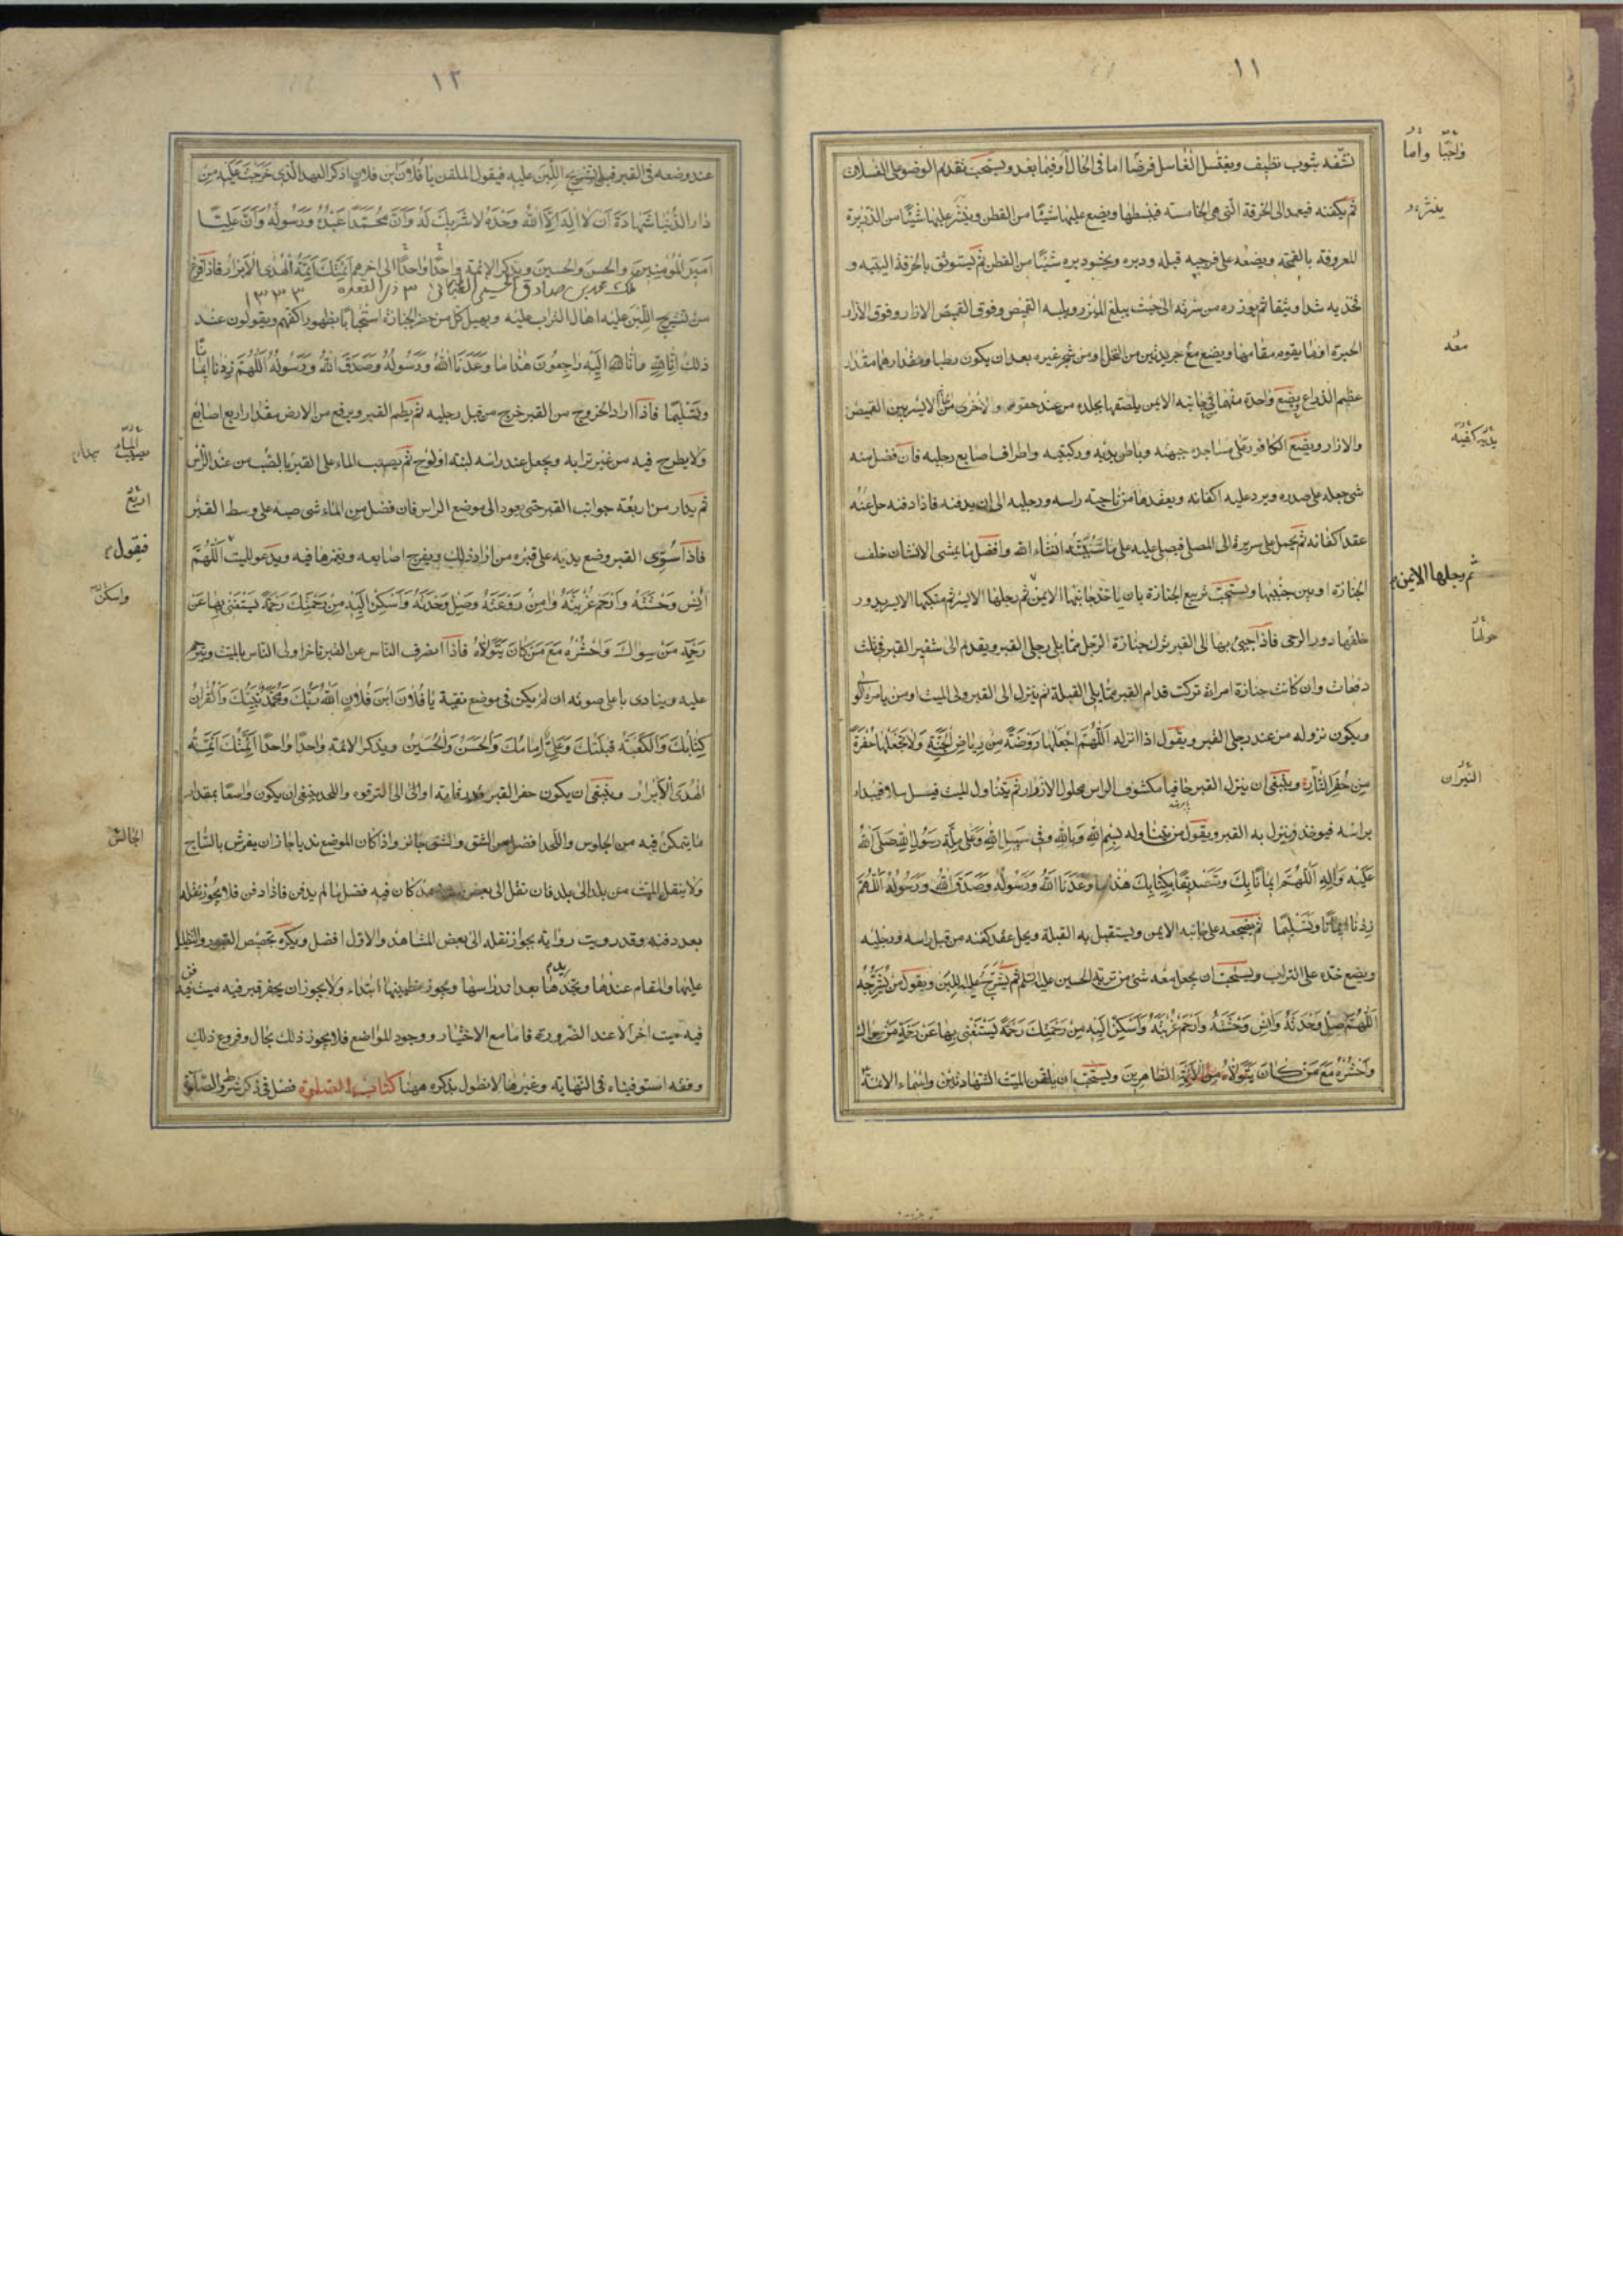 ١١
نشّفه بثوب نظيف ويغتسل الغاسل فرضًا اما فى الحال أو فيما بعد ويستحب تقديم الوضوء على الغسل
ثم يكفنه فيعمد الى الخرقة التى هى الخامسة فيبسطها ويضع عليها شيئًا من القطن وينثر عليها شيئًا من الذريرة
المعروفة بالقمحة ويضعه على فرجيه قبله ودبره ويحشو دبره شيئًا من القطن ثم يستوثق بالخرقة اليتيه و
فخذيه شدا وثيقا ثم يوزره من سرته الى حيث يبلغ الميزر ويلبسه القميص وفوق القميص الازار وفوق الازار
الحبرة او ما يقوم مقامها ويضع مع جريدتين من النخل او من شجر غيره بعد ان يكون رطبا ومقدارهما مقدار
عظم الذراع ويضع واحدة منهما فى جانبه الايمن يلصقها بجلده من عند حقوه والاخرى من الايسر بين القميص
والازار ويضع الكافور على مساجده جبهته وباطن يديه وركبتيه واطراف اصابع رجليه فان فضل منه
شى جعله على صدره ويرد عليه اكفانه ويعقدها من ناحية راسه ورجليه الى ان يدفنه فاذا دفنه حل عنه
عقد اكفانه ثم يحمل على سريره الى المصلى فيصلى عليه على ما سنبيّنه انشاء الله وافضل ما يمشى الانسان خلف
الجنازة او بين جنبيها ويستحب تربيع الجنازة بان ياخذ جانبها الايمن ثم رجلها الايسر ثم منكبها الايسر يدور
خلفها دور الرحى فاذا جيئ بها الى القبر نزل جنازة الرجل مما يلى رجلى القبر ويقدم الى شفير القبر فى ثلث
دفعات وان كانت جنازة امراة تركت قدام القبر مما يلى القبلة ثم ينزل الى القبر ولى الميت او من يامره الولى
ويكون نزوله من عند رجلى القبر ويقول اذا نزله اللّهمّ اجعلها روضة من رياض الجنّة ولا تجعلها حفرة
من حفر النّار وينبغى ان ينزل القبر حافيا مكشوف الراس محلول الازرار ثم يتناول الميت فيسل سلا فيبداء
براسه فيوخذ وينزل به القبر ويقول من يتناوله بسم الله وبالله وفى سبيل الله وعلى ملّة رسول الله صلّى الله
عليه وآله اللّهمّ ايمانًا بك وتصديقًا بكتابك هذا ما وعدنا الله ورسوله وصدق الله ورسوله اللّهمّ
زدنا ايمانًا وتسليمًا ثم يضجعه على جانبه الايمن ويستقبل به القبلة ويحل عقد كفنه من قبل راسه ورجليه
ويضع خده على التراب ويستحب ان يجعل معه شئ من تربة الحسين عليه السلم ثم يشرج عليه اللبن ويقول من يشرجه
اللّهمّ صل وحدته وانس وحشته وارحم غربته واسكن اليه من رحمتك رحمة يستغنى بها عن رحمة من سواك
واحشره مع من كان يتولاه من الائمة الطاهرين ويستحب ان يلقن الميت الشهادتين واسماء الائمة
واجبًا واما
ينثره
معه
يديه كفيه
ثم رجلها الايمن
حولها
النيران
١٢
عند وضعه فى القبر قبل تشريج اللبن عليه فيقول الملقن يا فلان بن فلان اذكر العهد الذى خرجت عليه من
دار الدّنيا شهادة ان لا اله الّا الله وحده لا شريك له وانّ محمّدًا عبده ورسوله وانّ عليًّا
امير المؤمنين والحسن والحسين ويذكر الائمة واحدًا واحدًا الى اخرهم ائمّتك ائمّة الهدى الابرار فاذا فرغ
من تشريج اللبن عليه اهال التراب عليه ويهيل كل من حضر الجنازة استحبابًا بظهور اكفهم ويقولون عند
ذلك انّا لله وانّا اليه راجعون هذا ما وعدنا الله ورسوله وصدق الله ورسوله اللّهمّ زدنا ايمانًا
وتسليمًا فاذا اراد الخروج من القبر خرج من قبل رجليه ثم يطم القبر ويرفع من الارض مقدار اربع اصابع
ولا يطرح فيه من غير ترابه ويجعل عند راسه لبنة او لوح ثم يصب الماء على القبر يبدا بالصب من عند الرّاس
ثم يدار من اربعة جوانب القبر حتى يعود الى موضع الراس فان فضل من الماء شى صبه على وسط القبر
فاذا سُوّى القبر وضع يديه على قبره من اراد ذلك ويفرج اصابعه ويغمزها فيه ويدعو للميت اللّهمّ
آنس وحشته وارحم غربته وآمن روعته وصل وحدته واسكن اليه من رحمتك رحمة يستغنى بها عن
رحمة من سواك واحشره مع من كان يتولّاه فاذا انصرف الناس عن القبر تاخر اولى الناس بالميت ويترحم
عليه وينادى باعلى صوته ان لم يكن فى موضع تقية يا فلان ابن فلان الله ربّك ومحمّد نبيّك والقران
كتابك والكعبة قبلتك وعلىّ امامك والحسن والحسين ويذكر الائمة واحدًا واحدًا ائمّتك ائمّة
الهدى الابرار وينبغى ان يكون حفر القبر قدر قامة او الى الترقوه واللحد ينبغى ان يكون واسعًا بمقدار
ما يتمكن فيه من الجلوس واللحد افضل من الشق والشق جائز واذا كان الموضع نديا جاز ان يفرش بالساج
ولا ينقل الميت من بلد الى بلد فان نقل الى بعض كان فيه فضل ما لم يدفن فاذا دفن فلا يجوز نقله
بعد دفنه وقد رويت رواية بجواز نقله الى بعض المشاهد والاول افضل ويكره تجصيص القبور والتظليل
عليها والمقام عندها وتجديدها بعد اندراسها ويجوز تطيينها ابتداء ولا يجوز ان يحفر قبر فيه ميت فيدفن
فيه ميت اخر الا عند الضرورة فاما مع الاختيار ووجود المواضع فلا يجوز ذلك بحال وفروع ذلك
وفقه استوفيناه فى النهاية وغيرها لا نطول بذكره ههنا كتاب الصلوة فصل فى ذكر شروط الصلوة
الماء
اربع
فيقول
واسكن
الجالس